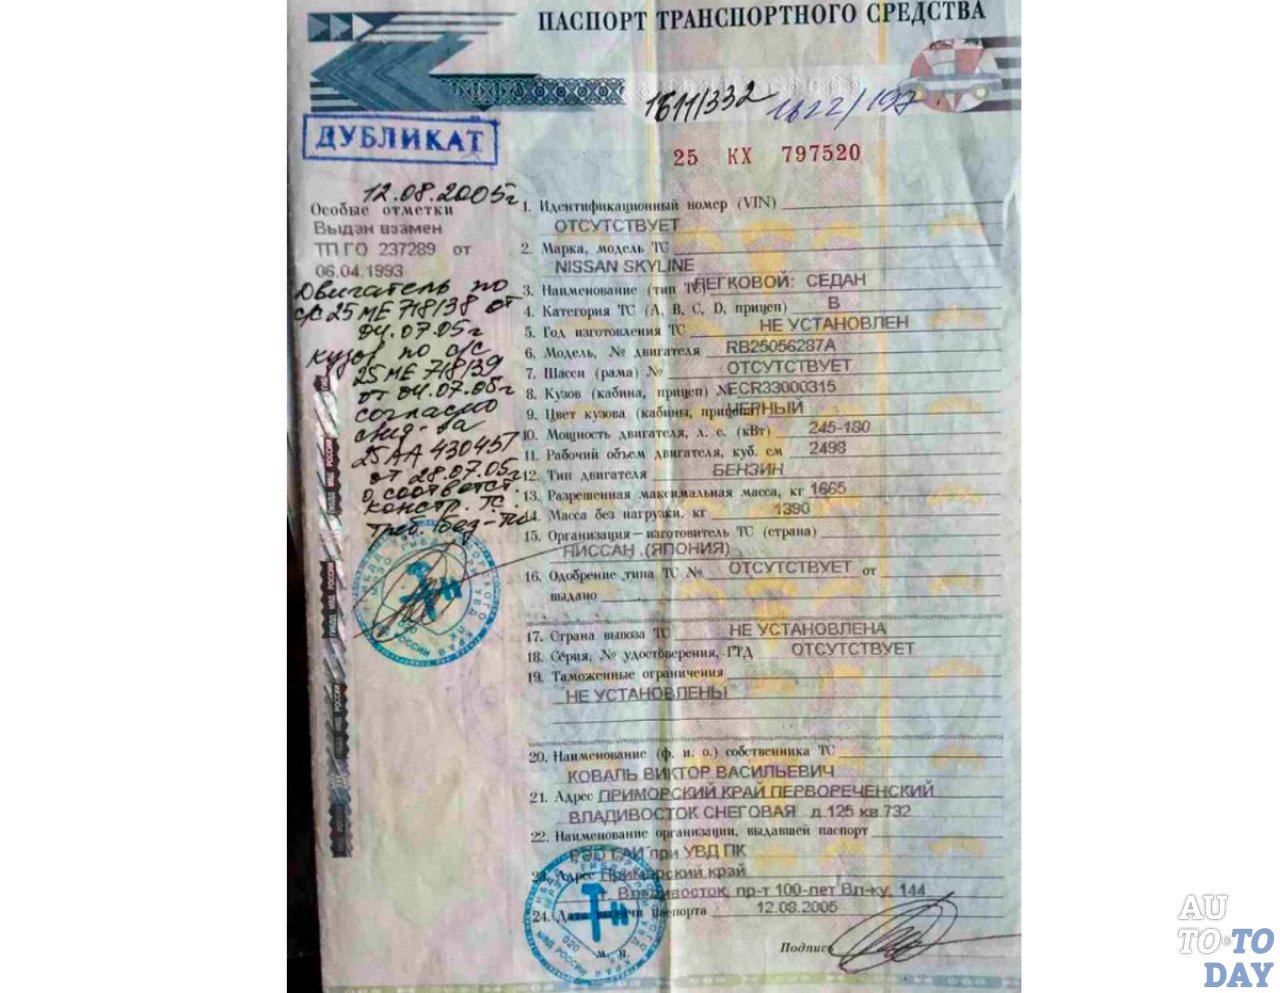 ПАСПОРТ ТРАНСПОРТНОГО СРЕДСТВА
1611/332 1622/197
ДУБЛИКАТ
25 КХ 797520
12.08.2005г
Особые отметки
Выдан взамен
ТП ГО 237289 от
06.04.1993
Двигатель по
с/с 25 МЕ 718138 от
04.07.05г
кузов по с/с
25 МЕ 718139
от 04.07.05г
согласно
свид-ва
25 АА 430457
от 28.07.05г
о соответст.
констр. ТС
треб. Без-ти
1. Идентификационный номер (VIN)
ОТСУТСТВУЕТ
2. Марка, модель ТС
NISSAN SKYLINE
3. Наименование (тип ТС) ЛЕГКОВОЙ: СЕДАН
4. Категория ТС (А, В, С, D, прицеп) В
5. Год изготовления ТС НЕ УСТАНОВЛЕН
6. Модель, № двигателя RB25056287A
7. Шасси (рама) № ОТСУТСТВУЕТ
8. Кузов (кабина, прицеп) № ECR33000315
9. Цвет кузова (кабины, прицепа) ЧЕРНЫЙ
10. Мощность двигателя, л. с. (кВт) 245-180
11. Рабочий объем двигателя, куб. см 2498
12. Тип двигателя БЕНЗИН
13. Разрешенная максимальная масса, кг 1665
14. Масса без нагрузки, кг 1390
15. Организация—изготовитель ТС (страна)
НИССАН (ЯПОНИЯ)
16. Одобрение типа ТС № ОТСУТСТВУЕТ от
выдано
17. Страна вывоза ТС НЕ УСТАНОВЛЕНА
18. Серия, № удостоверения, ГТД ОТСУТСТВУЕТ
19. Таможенные ограничения
НЕ УСТАНОВЛЕНЫ
20. Наименование (ф. и. о.) собственника ТС
КОВАЛЬ ВИКТОР ВАСИЛЬЕВИЧ
21. Адрес ПРИМОРСКИЙ КРАЙ ПЕРВОРЕЧЕНСКИЙ
ВЛАДИВОСТОК СНЕГОВАЯ д.125 кв.732
22. Наименование организации, выдавшей паспорт
РЭО ГАИ при УВД ПК
23. Адрес Приморский край
г. Владивосток, пр-т 100-лет Вл-ку, 144
24. Дата выдачи паспорта 12.08.2005
М. П.
Подпись
AU
TO TO
DAY